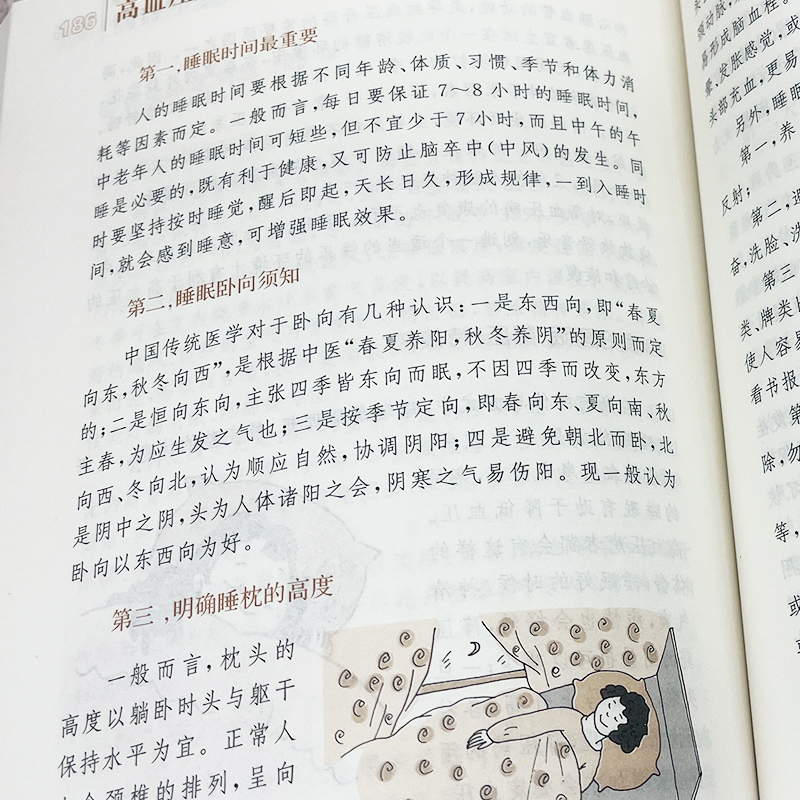 186
高血压
第一,睡眠时间最重要
人的睡眠时间要根据不同年龄、体质、习惯、季节和体力消
耗等因素而定。一般而言,每日要保证7～8小时的睡眠时间,
中老年人的睡眠时间可短些,但不宜少于7小时,而且中午的午
睡是必要的,既有利于健康,又可防止脑卒中(中风)的发生。同
时要坚持按时睡觉,醒后即起,天长日久,形成规律,一到入睡时
间,就会感到睡意,可增强睡眠效果。
第二,睡眠卧向须知
中国传统医学对于卧向有几种认识:一是东西向,即“春夏
向东,秋冬向西”,是根据中医“春夏养阳,秋冬养阴”的原则而定
的;二是恒向东向,主张四季皆东向而眠,不因四季而改变,东方
主春,为应生发之气也;三是按季节定向,即春向东、夏向南、秋
向西、冬向北,认为顺应自然,协调阴阳;四是避免朝北而卧,北
是阴中之阴,头为人体诸阳之会,阴寒之气易伤阳。现一般认为
卧向以东西向为好。
第三,明确睡枕的高度
一般而言,枕头的
高度以躺卧时头与躯干
保持水平为宜。正常人
颈椎的排列,呈向
颈动脉,
易形成脑血栓。
晕、发胀感觉,或
头部充血,更易
另外,睡眠
第一,养
反射;
第二,
奋,洗脸、洗
第三
类、牌类
使人容易
看书报
第
除,勿
等,
或